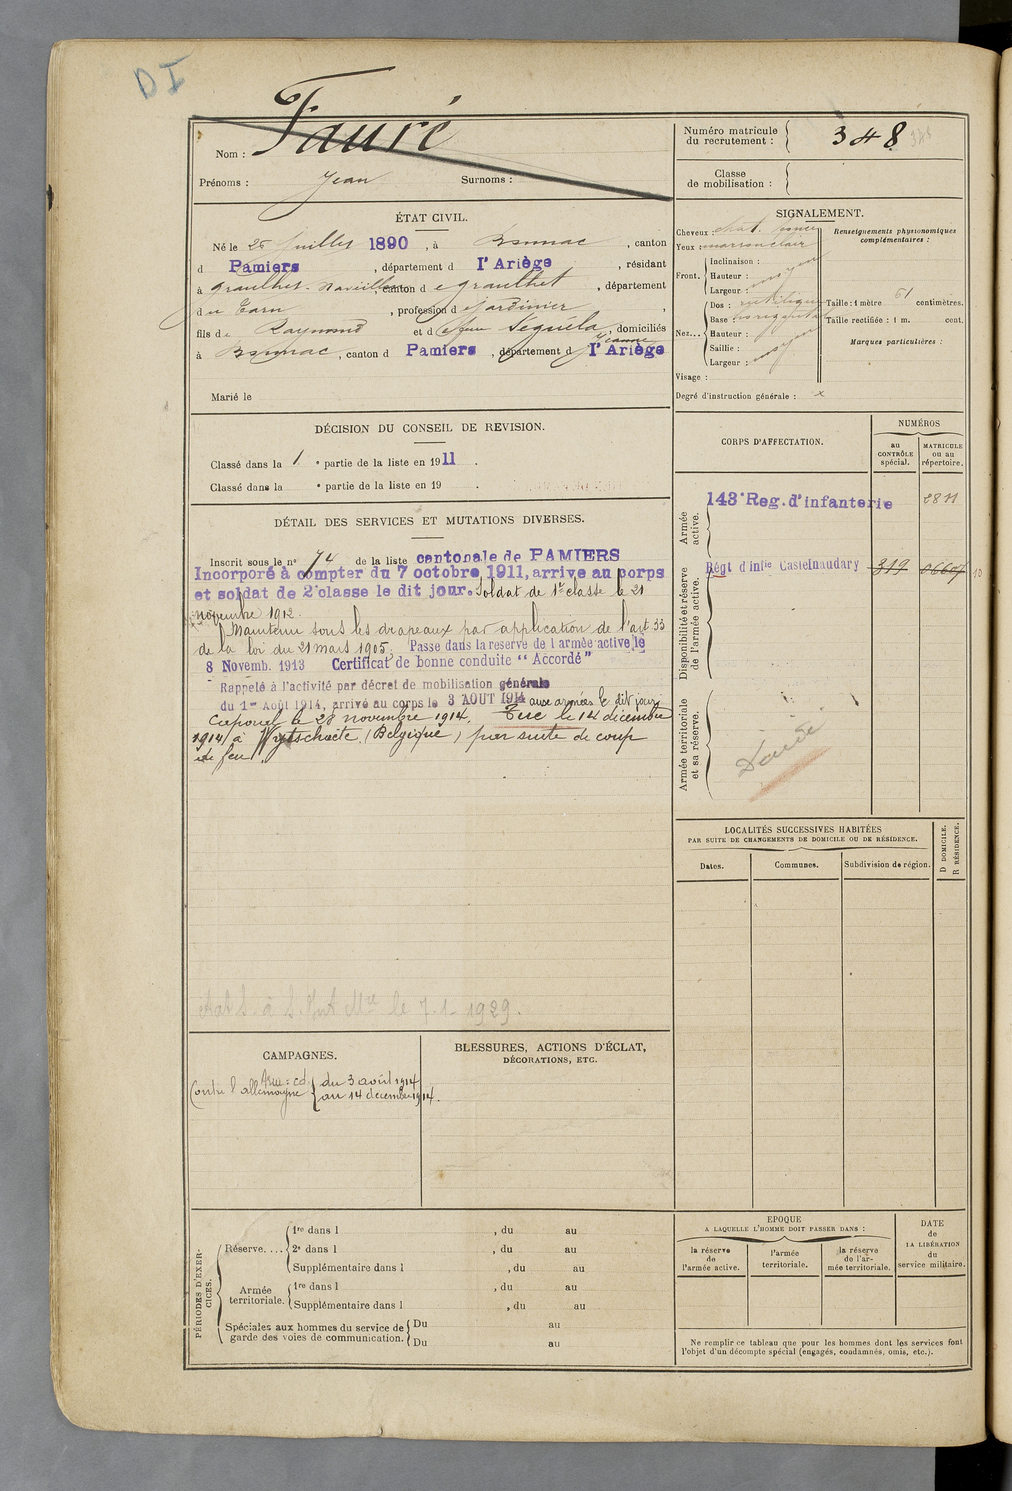 DI
Fauré
Nom :
Prénoms : Jean Surnoms :
Numéro matricule du recrutement : 348
Classe de mobilisation :
ÉTAT CIVIL.
Né le 26 Juillet 1890, à , canton
d Pamiers, département d l'Ariège, résidant
à Graulhet , canton de Graulhet, département
du Tarn, profession de Jardinier,
fils de Raymond et de Séguéla Jeanne, domiciliés
à , canton d Pamiers, département d l'Ariège
Marié le
SIGNALEMENT.
Cheveux : chat.
Yeux : marron clair
Front. Inclinaison :
Hauteur : moyen
Largeur :
Nez... Dos : rectiligne
Base : horizontal
Hauteur :
Saillie : moyen
Largeur :
Visage :
Renseignements physionomiques complémentaires :
Taille : 1 mètre 61 centimètres.
Taille rectifiée : 1 m. cent.
Marques particulières :
Degré d'instruction générale : x
DÉCISION DU CONSEIL DE REVISION.
Classé dans la 1 e partie de la liste en 1911.
Classé dans la e partie de la liste en 19 .
DÉTAIL DES SERVICES ET MUTATIONS DIVERSES.
Inscrit sous le n° 74 de la liste cantonale de PAMIERS
Incorporé à compter du 7 octobre 1911, arrive au corps
et soldat de 2e classe le dit jour. Soldat de 1re classe le 21
novembre 1912.
Maintenu sous les drapeaux par application de l'art 33
de la loi du 21 mars 1905. Passé dans la reserve de l'armée active le
8 Novemb. 1913 Certificat de bonne conduite "Accordé"
Rappelé à l'activité par décret de mobilisation générale
du 1er Août 1914, arrivé au corps le 3 AOUT 1914 aux armées le dit jour
Caporal le 28 novembre 1914. Tué le 14 décembre
1914 à Wytschaete (Belgique) par suite de coup
de feu.
le 7-1-1929.
CORPS D'AFFECTATION.
NUMÉROS
au CONTRÔLE spécial.
MATRICULE ou au répertoire.
Armée active.
143e Reg. d'infanterie 2811
Disponibilité et réserve de l'armée active.
Régt d'infie Castelnaudary 319 06607
Armée territoriale et sa réserve.
Décédé
LOCALITÉS SUCCESSIVES HABITÉES
PAR SUITE DE CHANGEMENTS DE DOMICILE OU DE RÉSIDENCE.
D DOMICILE.
R RÉSIDENCE.
Dates. Communes. Subdivision de région.
CAMPAGNES.
Contre l'allemagne du 3 août 1914
au 14 décembre 1914.
BLESSURES, ACTIONS D'ÉCLAT,
DÉCORATIONS, ETC.
PÉRIODES D'EXERCICES.
Réserve.... 1re dans l , du au
2e dans l , du au
Supplémentaire dans l , du au
Armée territoriale. 1re dans l , du au
Supplémentaire dans l , du au
Spéciales aux hommes du service de garde des voies de communication. Du au
Du au
EPOQUE
A LAQUELLE L'HOMME DOIT PASSER DANS :
la réserve de l'armée active.
l'armée territoriale.
la réserve de l'armée territoriale.
DATE de LA LIBÉRATION du service militaire.
Ne remplir ce tableau que pour les hommes dont les services font
l'objet d'un décompte spécial (engagés, condamnés, omis, etc.).